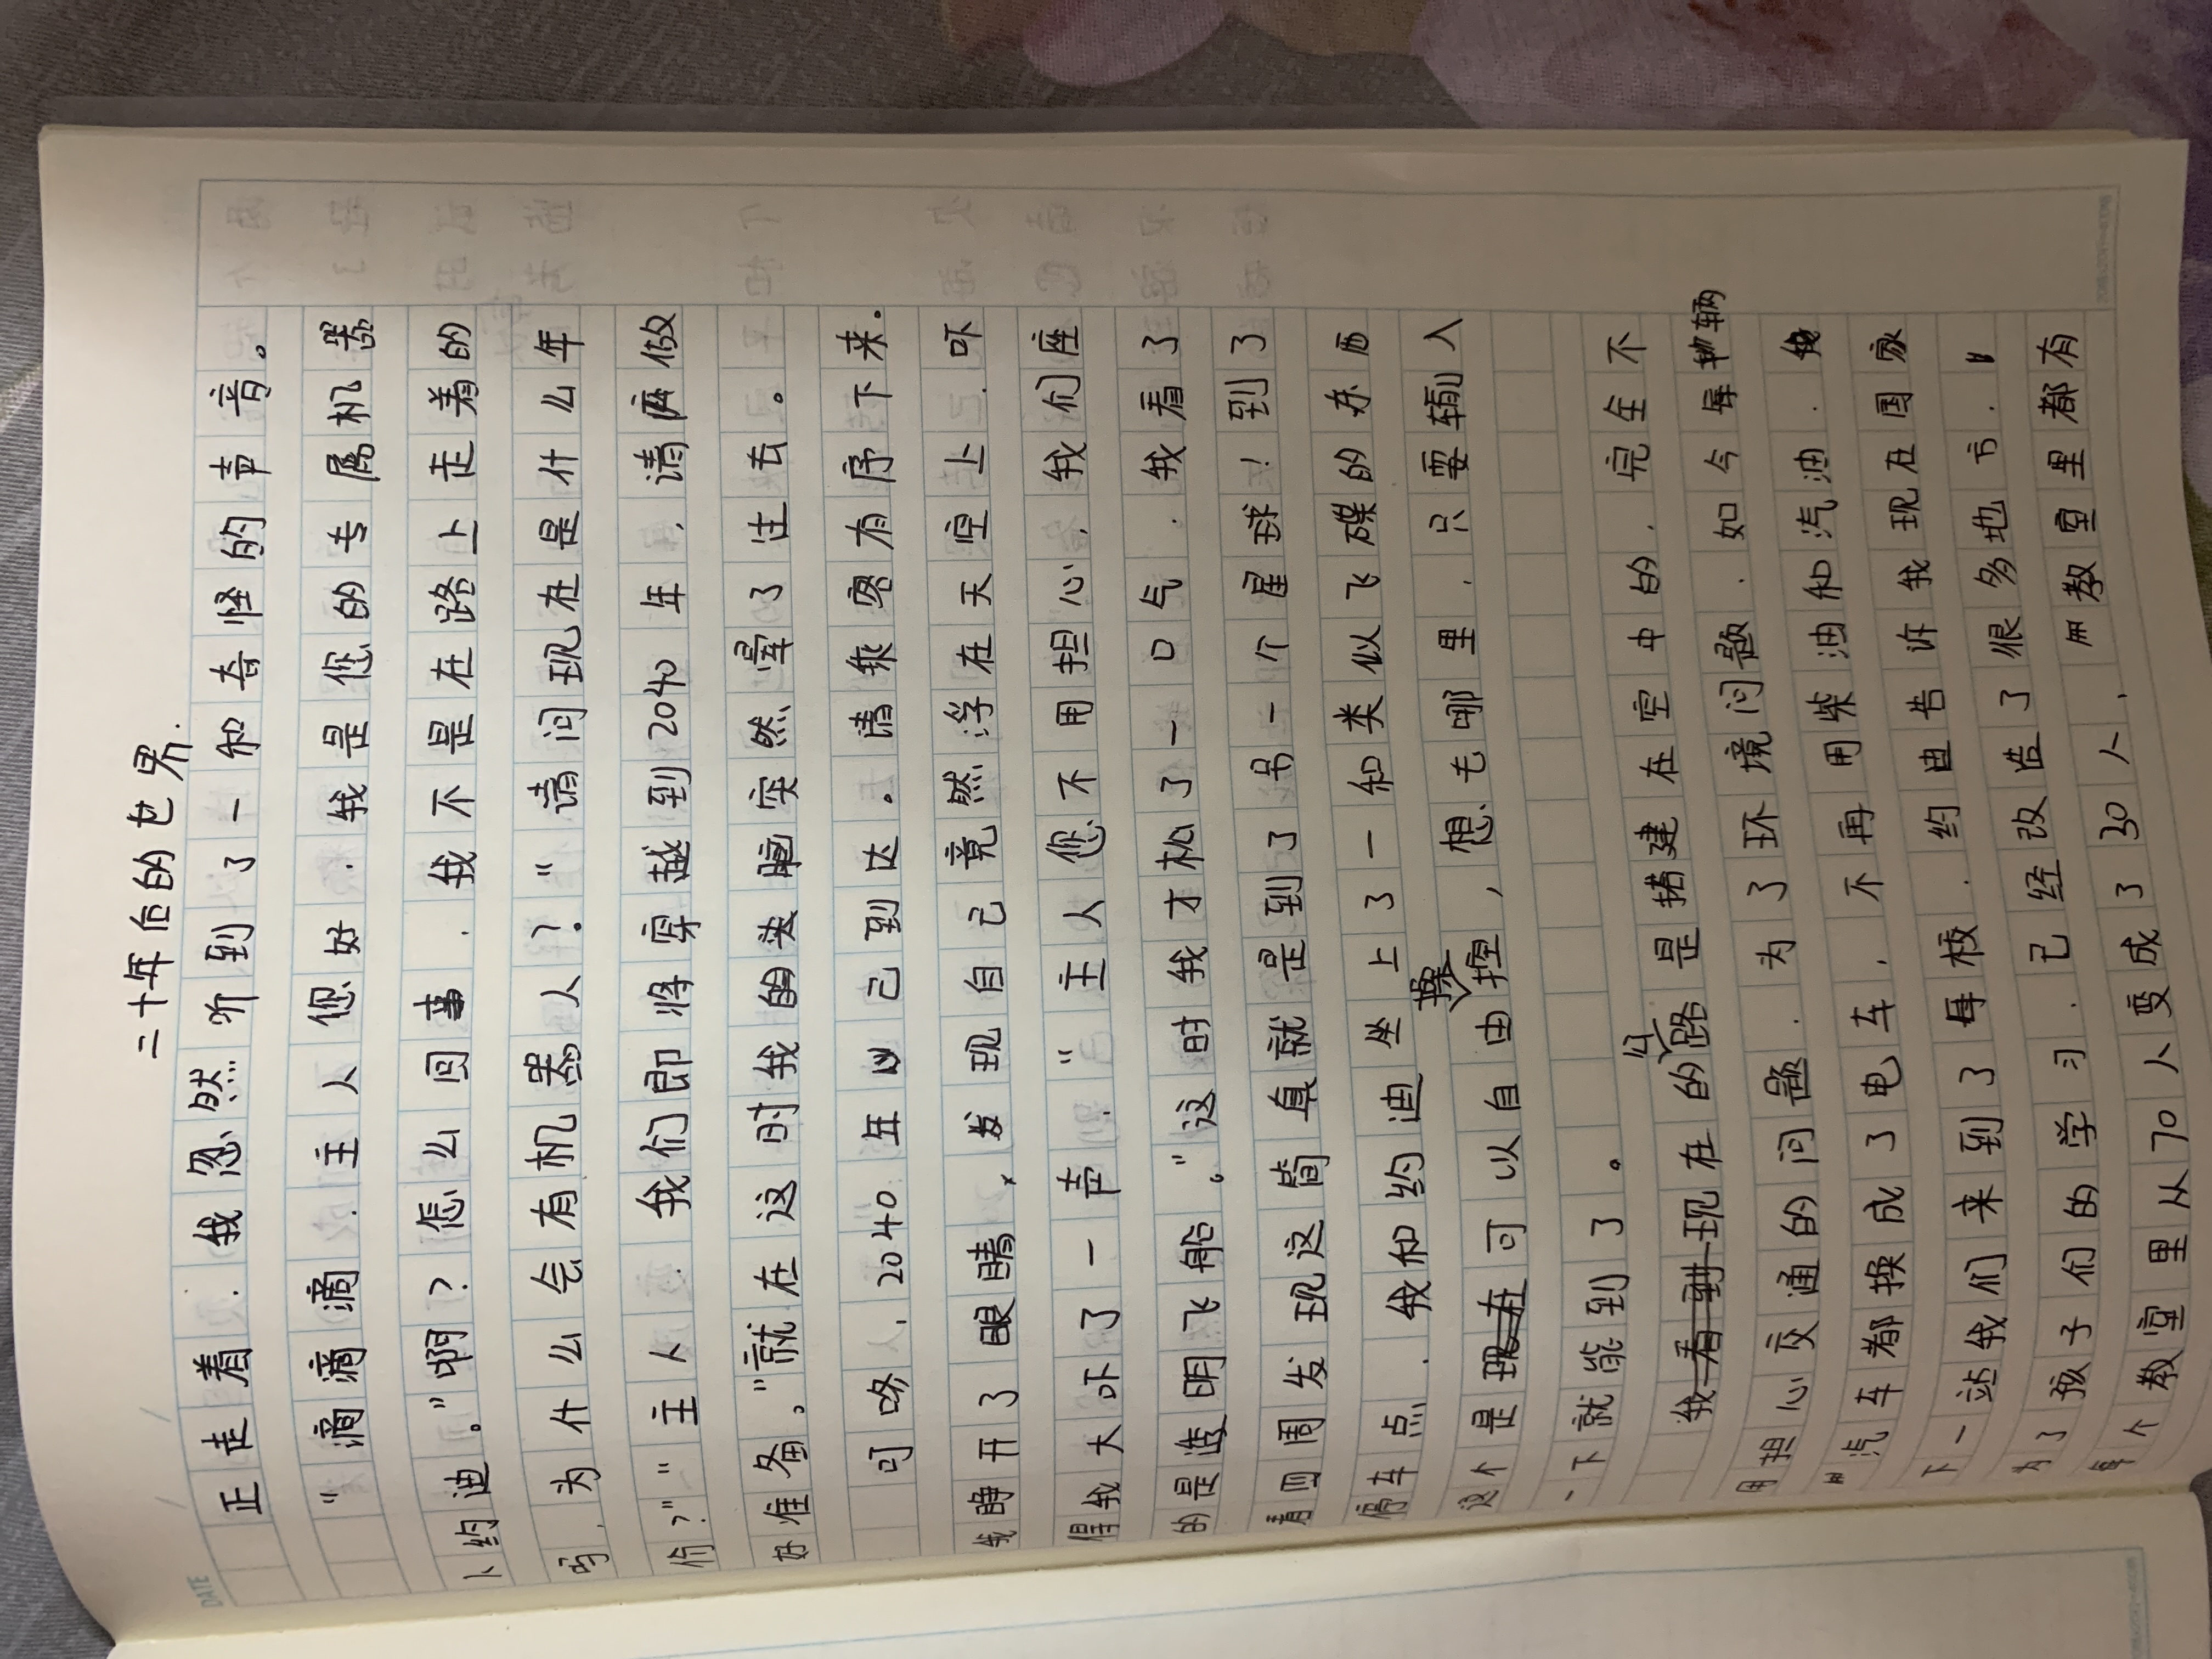 DATE
二十年后的世界.
正走着.我忽然听到了一和奇怪的声音。
"滴滴滴.主人您好.我是您的专属机器
卜约迪。"啊?怎么回事.我不是在路上走着的
吗,为什么会有机器人?"请问现在是什么年
份?""主人.我们即将穿越到2040年,请做
好准备。"就在这时我的头脑突然晕了过去。
叮咚,2040年已到达。请乘客有序下来.
我睁开了眼睛,发现自己竟然浮在天空上.吓
得我大吓了一声."主人您不用担心,我们座
的是透明飞船。"这时我才松了一口气.我看了
看四周发现这简直就是到了另一个星球!到了
停车点.我和约迪坐上了一和类似飞碟的东西
这个是可以自由操控,想去哪里,只要输入
一下就能到了。
现在的公路是搭建在空中的.完全不
用担心交通的问题.为了环境问题.如今车辆
汽车都换成了电车,不再用柴油和汽油.
下一站我们来到了母校.约迪告诉我现在国家
为了孩子们的学习.已经改造了很多地方.
每个教室里从70人变成了30人,教室里都有